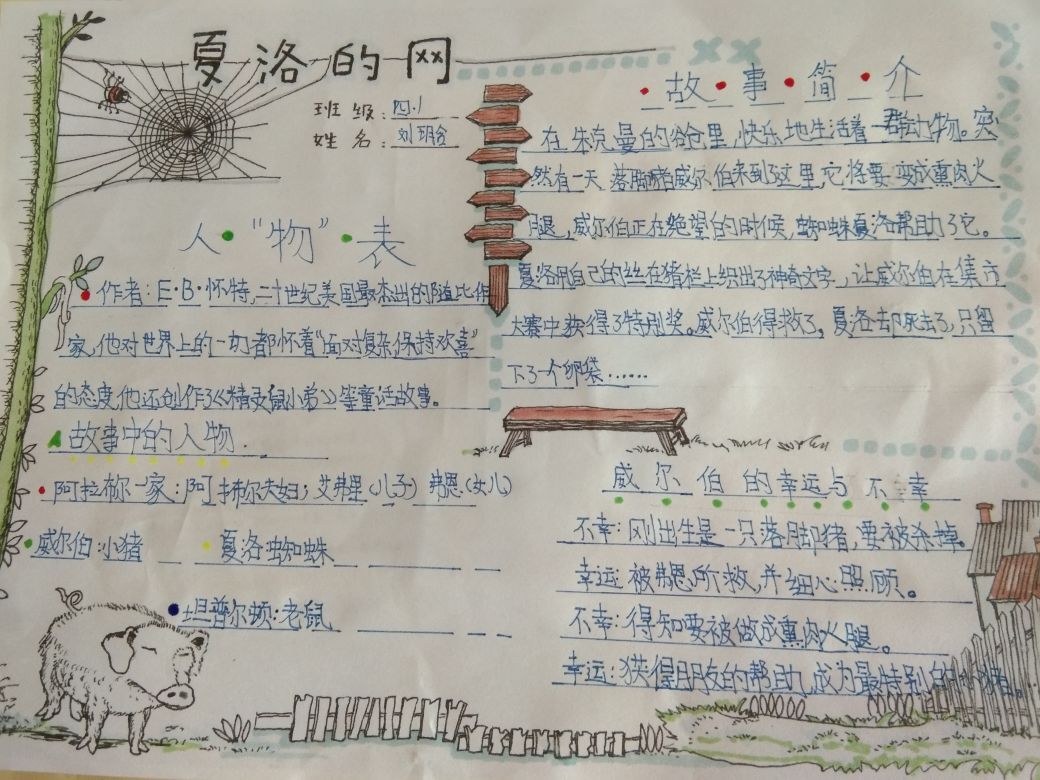 夏洛的网
班级：四.1
姓名：刘玥含
人"物"表
作者：E·B·怀特,二十世纪美国最杰出的随比作
家,他对世界上的一切都怀着"面对复杂,保持欢喜"
的态度,他还创作了《精灵鼠小弟》等童话故事。
故事中的人物.
阿拉柳一家：阿拉柳夫妇；艾弗里(儿子) 弗恩(女儿)
威尔伯：小猪 夏洛:蜘蛛
坦普尔顿：老鼠
故事简介
在朱克曼的谷仓里,快乐地生活着一群动物。突
然有一天,落脚猪威尔伯来到了这里,它将要变成熏肉火
腿,威尔伯正在绝望的时候,蜘蛛夏洛帮助了它。
夏洛用自己的丝在猪栏上织出了神奇文字,让威尔伯在集市
大赛中获得了特别奖。威尔伯得救了。夏洛却死去了,只留
下了一个卵袋……
威尔伯的幸运与不幸
不幸：刚出生是一只落脚猪,要被杀掉。
幸运:被弗恩所救,并细心照顾。
不幸：得知要被做成熏肉火腿。
幸运：获得朋友的帮助,成为最特别的小猪。